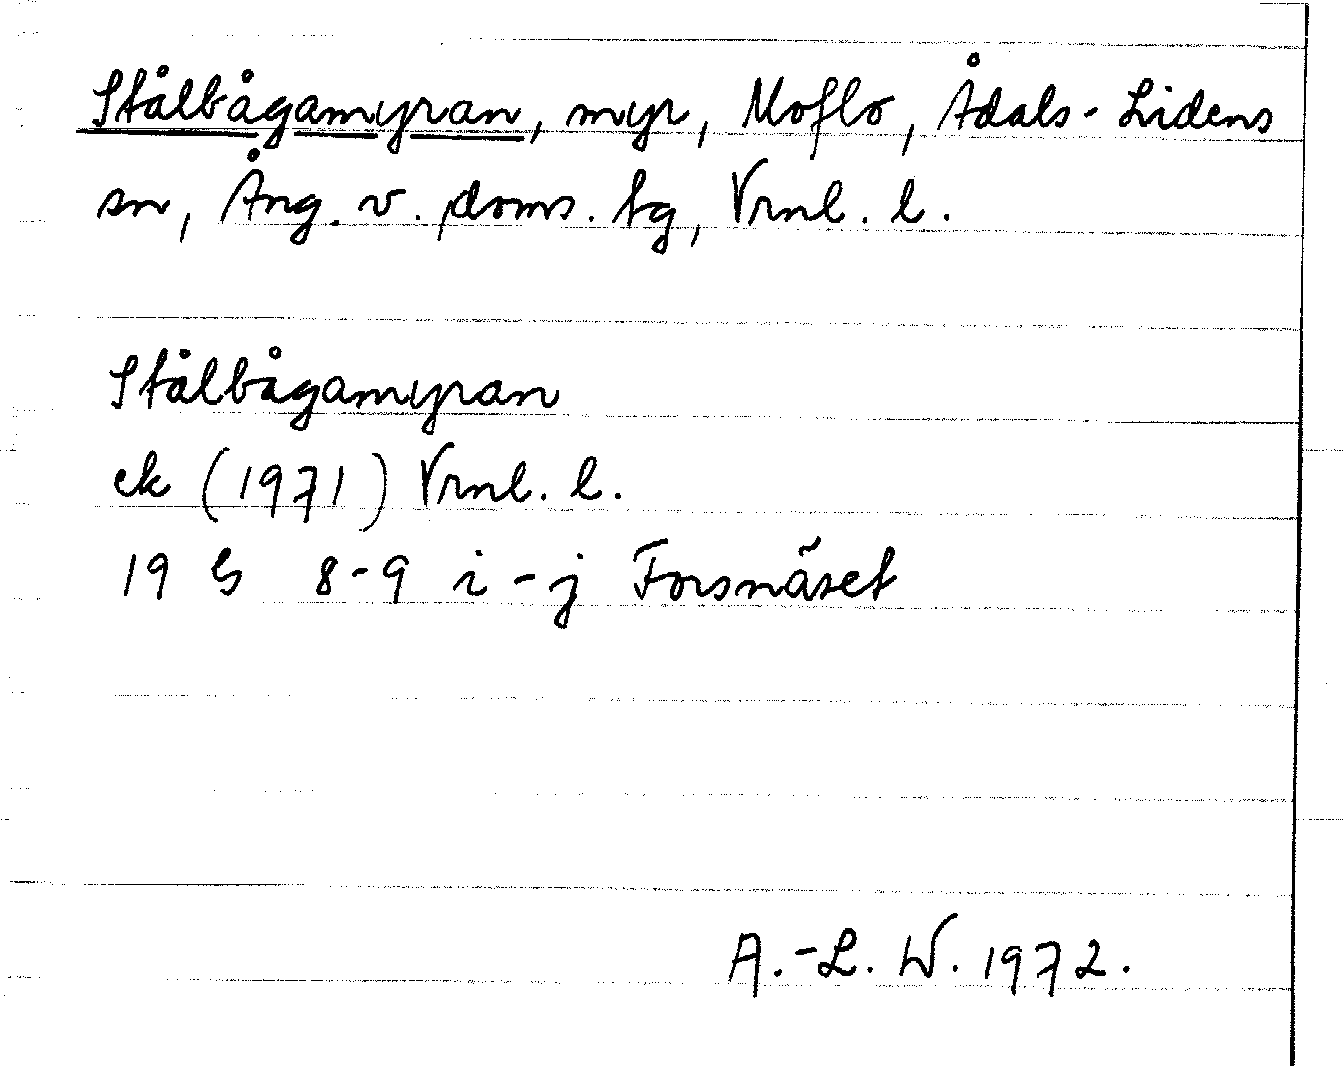 Stålbågamyran, myr, Moflo, Ådals-Lidens
sn, Ång. v. doms. tg, Vrnl. l.
Stålbågamyran
ek (1971) Vrnl. l.
19 G 8-9 i-j Forsnäset
A.-L. W. 1972.